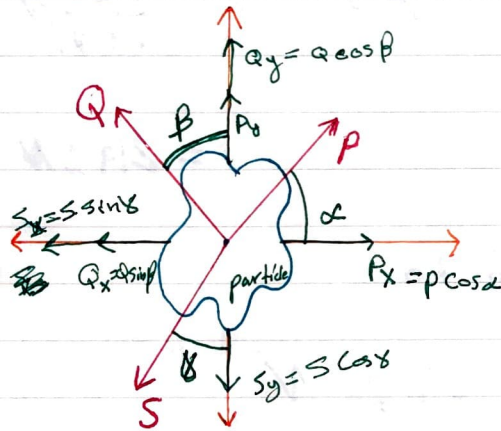 Qy = Q cos β
Q
β
Py
P
Sx = S sin γ
α
Qx = Q sin β
particle
Px = P cos α
γ
Sy = S cos γ
S